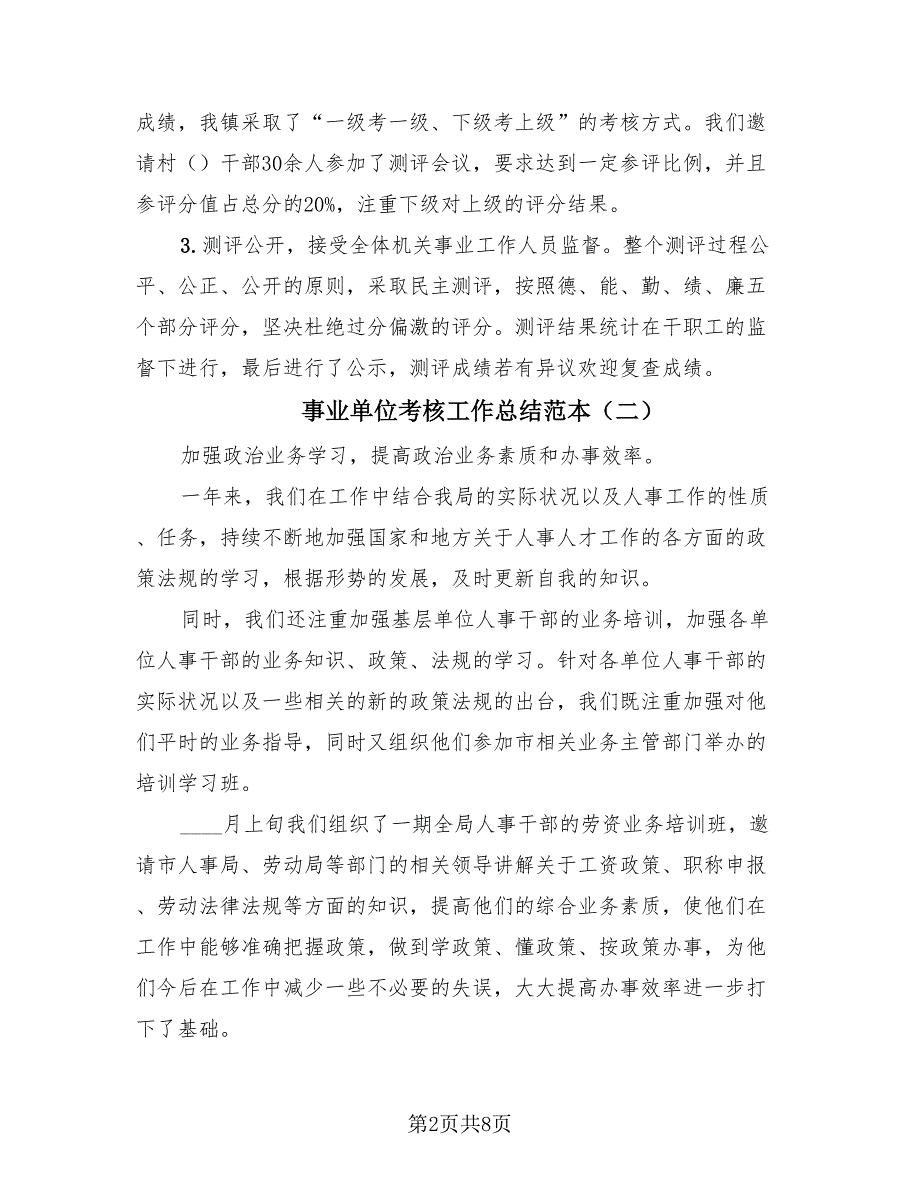 成绩，我镇采取了“一级考一级、下级考上级”的考核方式。我们邀
请村（）干部30余人参加了测评会议，要求达到一定参评比例，并且
参评分值占总分的20%，注重下级对上级的评分结果。
3. 测评公开，接受全体机关事业工作人员监督。整个测评过程公
平、公正、公开的原则，采取民主测评，按照德、能、勤、绩、廉五
个部分评分，坚决杜绝过分偏激的评分。测评结果统计在干职工的监
督下进行，最后进行了公示，测评成绩若有异议欢迎复查成绩。
事业单位考核工作总结范本（二）
加强政治业务学习，提高政治业务素质和办事效率。
一年来，我们在工作中结合我局的实际状况以及人事工作的性质
、任务，持续不断地加强国家和地方关于人事人才工作的各方面的政
策法规的学习，根据形势的发展，及时更新自我的知识。
同时，我们还注重加强基层单位人事干部的业务培训，加强各单
位人事干部的业务知识、政策、法规的学习。针对各单位人事干部的
实际状况以及一些相关的新的政策法规的出台，我们既注重加强对他
们平时的业务指导，同时又组织他们参加市相关业务主管部门举办的
培训学习班。
____月上旬我们组织了一期全局人事干部的劳资业务培训班，邀
请市人事局、劳动局等部门的相关领导讲解关于工资政策、职称申报
、劳动法律法规等方面的知识，提高他们的综合业务素质，使他们在
工作中能够准确把握政策，做到学政策、懂政策、按政策办事，为他
们今后在工作中减少一些不必要的失误，大大提高办事效率进一步打
下了基础。
第2页共8页